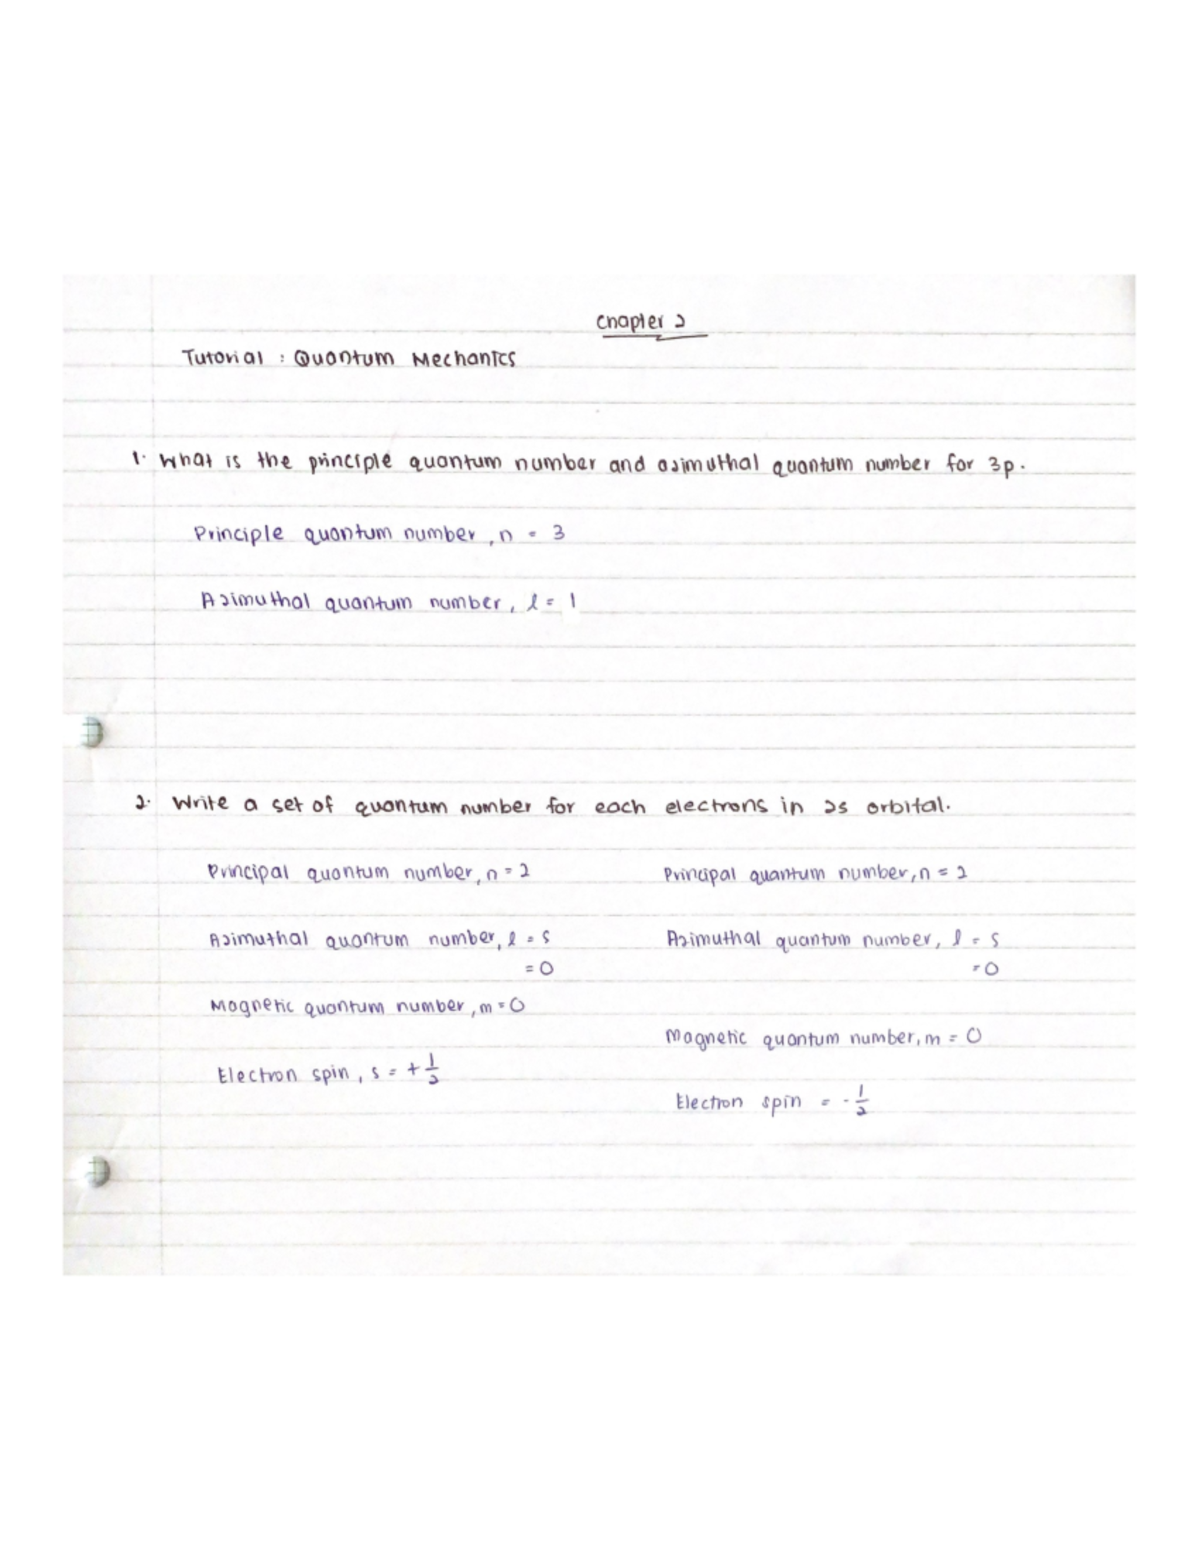 Chapter 2
Tutorial : Quantum Mechanics
1. What is the principle quantum number and azimuthal quantum number for 3p.
Principle quantum number, n = 3
Azimuthal quantum number, l = 1
2. Write a set of quantum number for each electrons in 2s orbital.
Principal quantum number, n = 2
Azimuthal quantum number, l = s
= 0
Magnetic quantum number, m = 0
Electron spin, s = + 1/2
Principal quantum number, n = 2
Azimuthal quantum number, l = s
= 0
Magnetic quantum number, m = 0
Electron spin = - 1/2